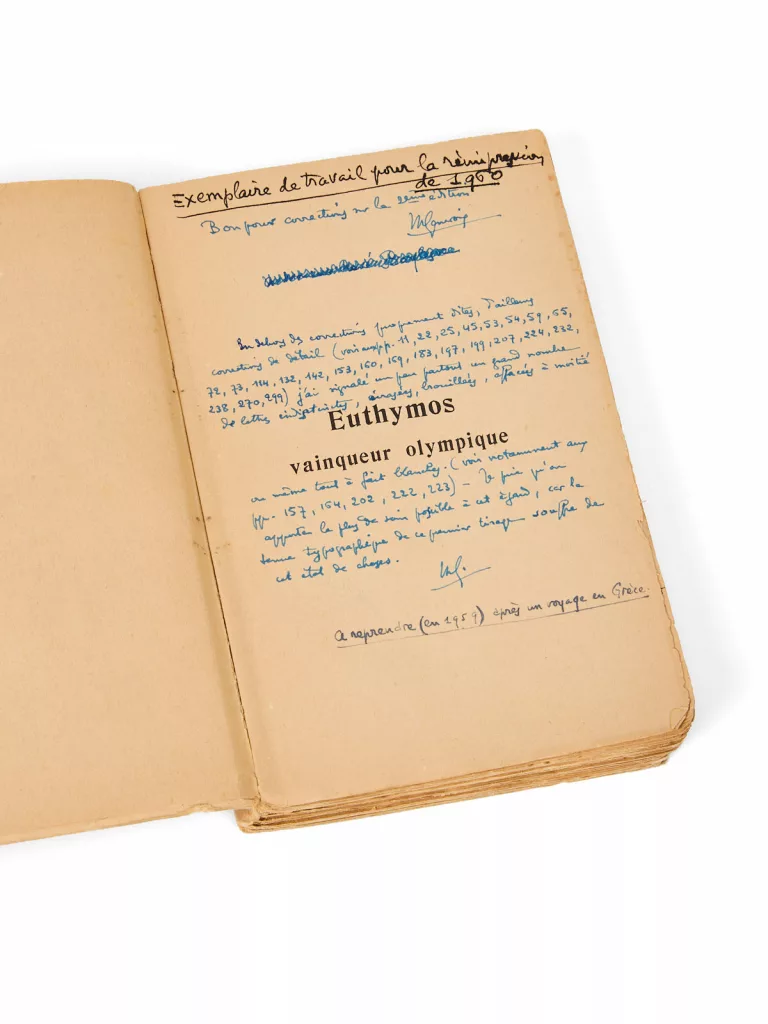 Exemplaire de travail pour la réimpression
de 1960
Bon pour corrections sur la 2ème édition
En dehors des corrections proprement dites, d'ailleurs
corrections de détail (voir aux pp. 11, 22, 25, 45, 53, 54, 59, 65,
72, 73, 114, 132, 142, 153, 160, 169, 183, 197, 199, 207, 224, 232,
238, 270, 299) j'ai signalé un peu partout un grand nombre
de lettres indistinctes, écrasées, brouillées, effacées à moitié
Euthymos
vainqueur olympique
ou même tout à fait blanches. (voir notamment aux
pp. 157, 164, 202, 222, 223) – Je prie qu'on
apporte le plus de soin possible à cet égard, car la
tenue typographique de ce premier tirage souffre de
cet état de choses.
MG.
A reprendre (en 1959) après un voyage en Grèce.